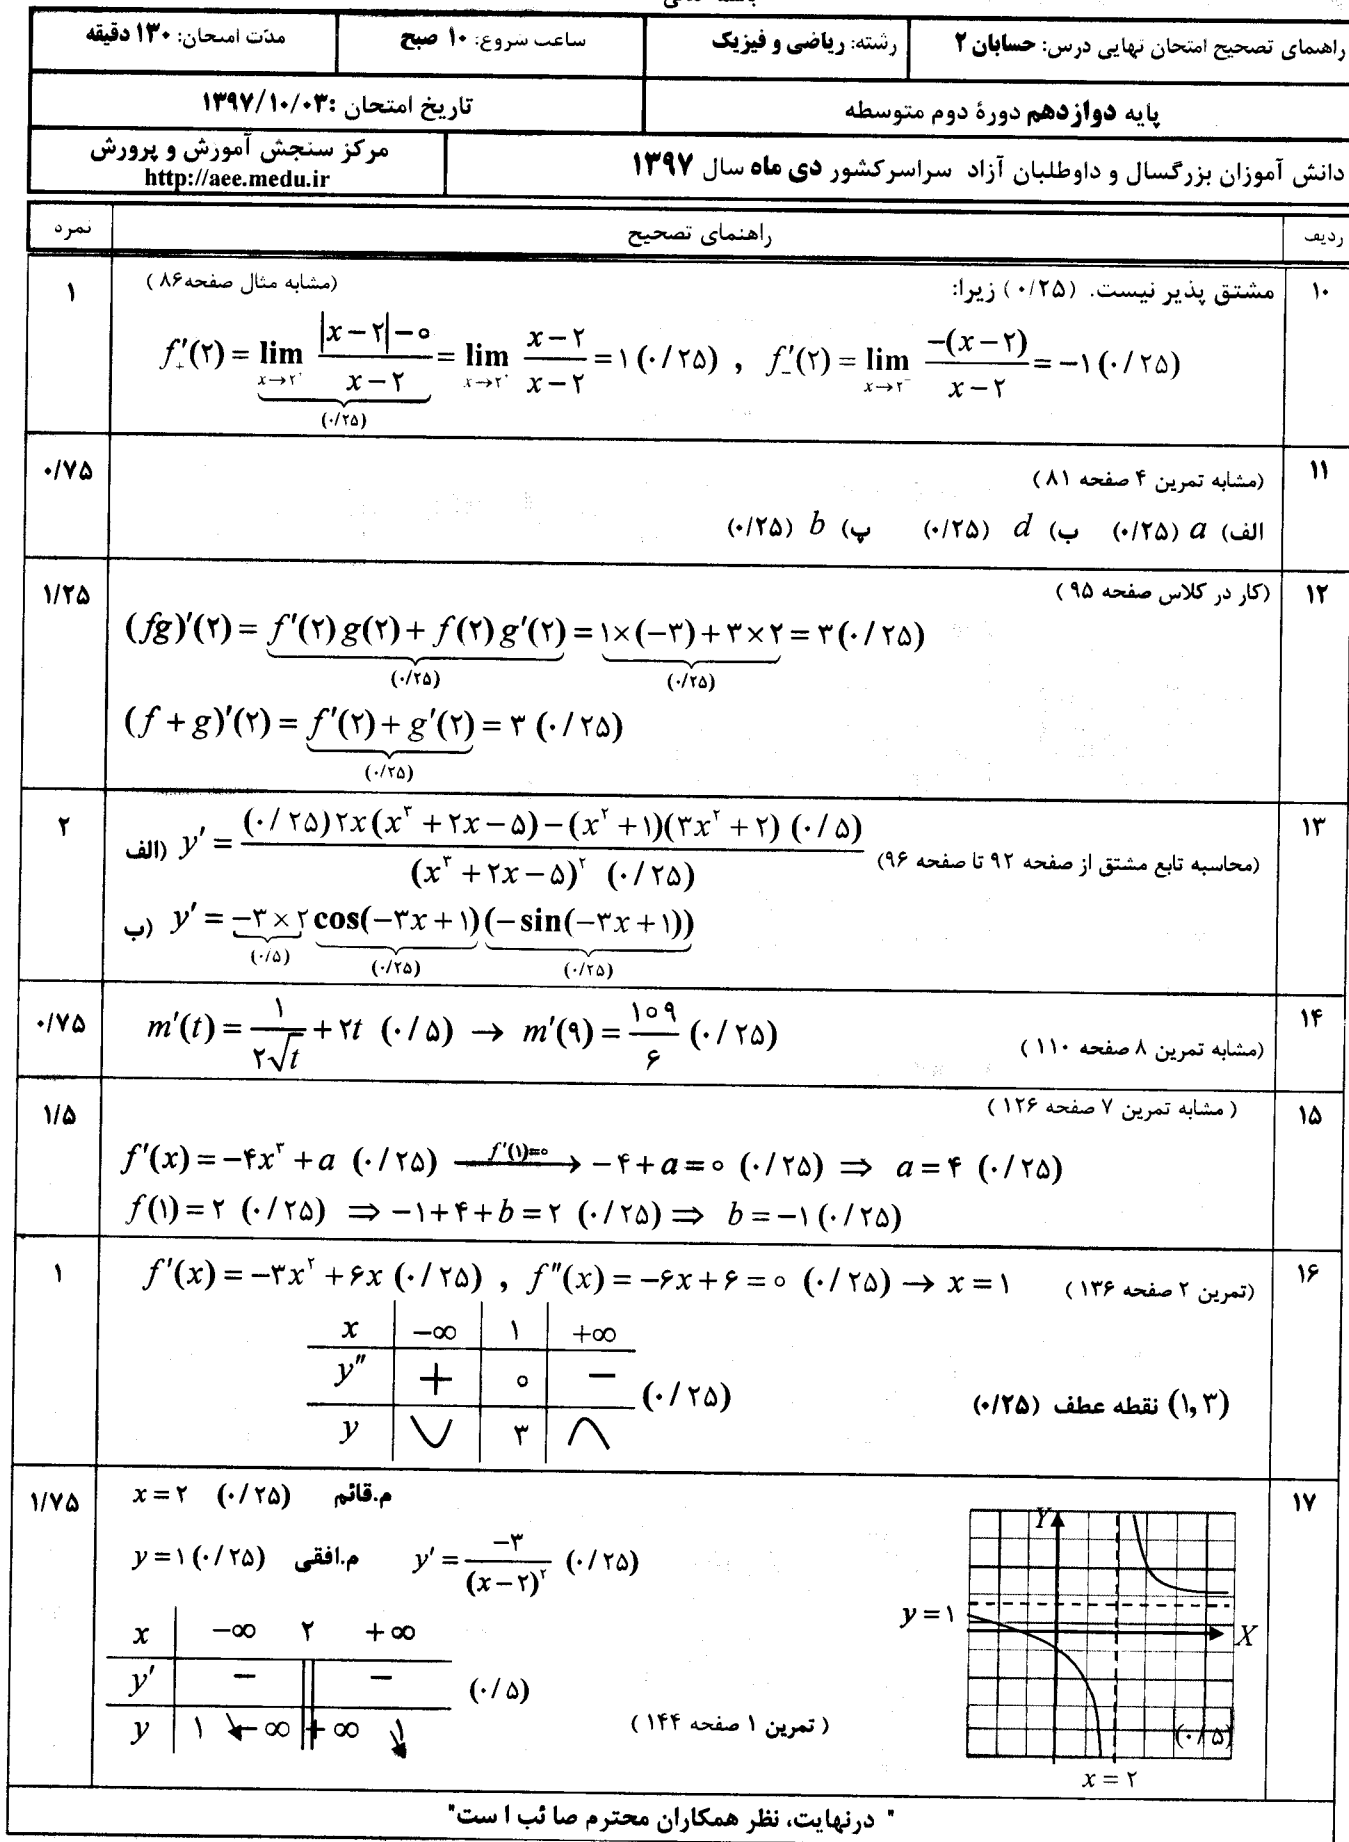 راهنمای تصحیح امتحان نهایی درس: حسابان ۲ رشته: ریاضی و فیزیک ساعت شروع: ۱۰ صبح مدّت امتحان: ۱۳۰ دقیقه
پایه دوازدهم دورهٔ دوم متوسطه تاریخ امتحان: ۱۳۹۷/۱۰/۰۳
دانش آموزان بزرگسال و داوطلبان آزاد سراسرکشور دی ماه سال ۱۳۹۷ مرکز سنجش آموزش و پرورش
http://aee.medu.ir
ردیف راهنمای تصحیح نمره
۱۰ مشتق پذیر نیست. (۰/۲۵) زیرا: (مشابه مثال صفحه۸۶) ۱
f'₊(۲) = lim x→۲⁺ (|x−۲|−۰)/(x−۲) (۰/۲۵) = lim x→۲⁺ (x−۲)/(x−۲) = ۱ (۰/۲۵) , f'₋(۲) = lim x→۲⁻ −(x−۲)/(x−۲) = −۱ (۰/۲۵)
۱۱ (مشابه تمرین ۴ صفحه ۸۱) ۰/۷۵
الف) a (۰/۲۵) ب) d (۰/۲۵) پ) b (۰/۲۵)
۱۲ (کار در کلاس صفحه ۹۵) ۱/۲۵
(fg)'(۲) = f'(۲)g(۲) + f(۲)g'(۲) (۰/۲۵) = ۱×(−۳)+۳×۲ (۰/۲۵) = ۳ (۰/۲۵)
(f+g)'(۲) = f'(۲)+g'(۲) (۰/۲۵) = ۳ (۰/۲۵)
۱۳ (محاسبه تابع مشتق از صفحه ۹۲ تا صفحه ۹۶) ۲
الف) y' = ((۰/۲۵) ۲x(x³+۲x−۵)−(x²+۱)(۳x²+۲) (۰/۵))/((x³+۲x−۵)² (۰/۲۵))
ب) y' = −۳×۲ (۰/۵) cos(−۳x+۱) (۰/۲۵) (−sin(−۳x+۱)) (۰/۲۵)
۱۴ (مشابه تمرین ۸ صفحه ۱۱۰) m'(t) = ۱/(۲√t) + ۲t (۰/۵) → m'(۹) = ۱۰۹/۶ (۰/۲۵) ۰/۷۵
۱۵ (مشابه تمرین ۷ صفحه ۱۲۶) ۱/۵
f'(x) = −۴x³+a (۰/۲۵) f'(۱)=۰ → −۴+a=۰ (۰/۲۵) ⇒ a=۴ (۰/۲۵)
f(۱)=۲ (۰/۲۵) ⇒ −۱+۴+b=۲ (۰/۲۵) ⇒ b=−۱ (۰/۲۵)
۱۶ (تمرین ۲ صفحه ۱۳۶) f'(x) = −۳x²+۶x (۰/۲۵) , f''(x) = −۶x+۶=۰ (۰/۲۵) → x=۱ ۱
x −∞ ۱ +∞
y'' + ۰ − (۰/۲۵)
y ۳
(۱,۳) نقطه عطف (۰/۲۵)
۱۷ x=۲ (۰/۲۵) م.قائم ۱/۷۵
y=۱ (۰/۲۵) م.افقی y' = −۳/(x−۲)² (۰/۲۵)
x −∞ ۲ +∞
y' − − (۰/۵)
y ۱ ↘ −∞ +∞ ↘ ۱
(تمرین ۱ صفحه ۱۴۴)
Y
y=۱
X
(۰/۵)
x=۲
" درنهایت، نظر همکاران محترم صا ئب ا ست"